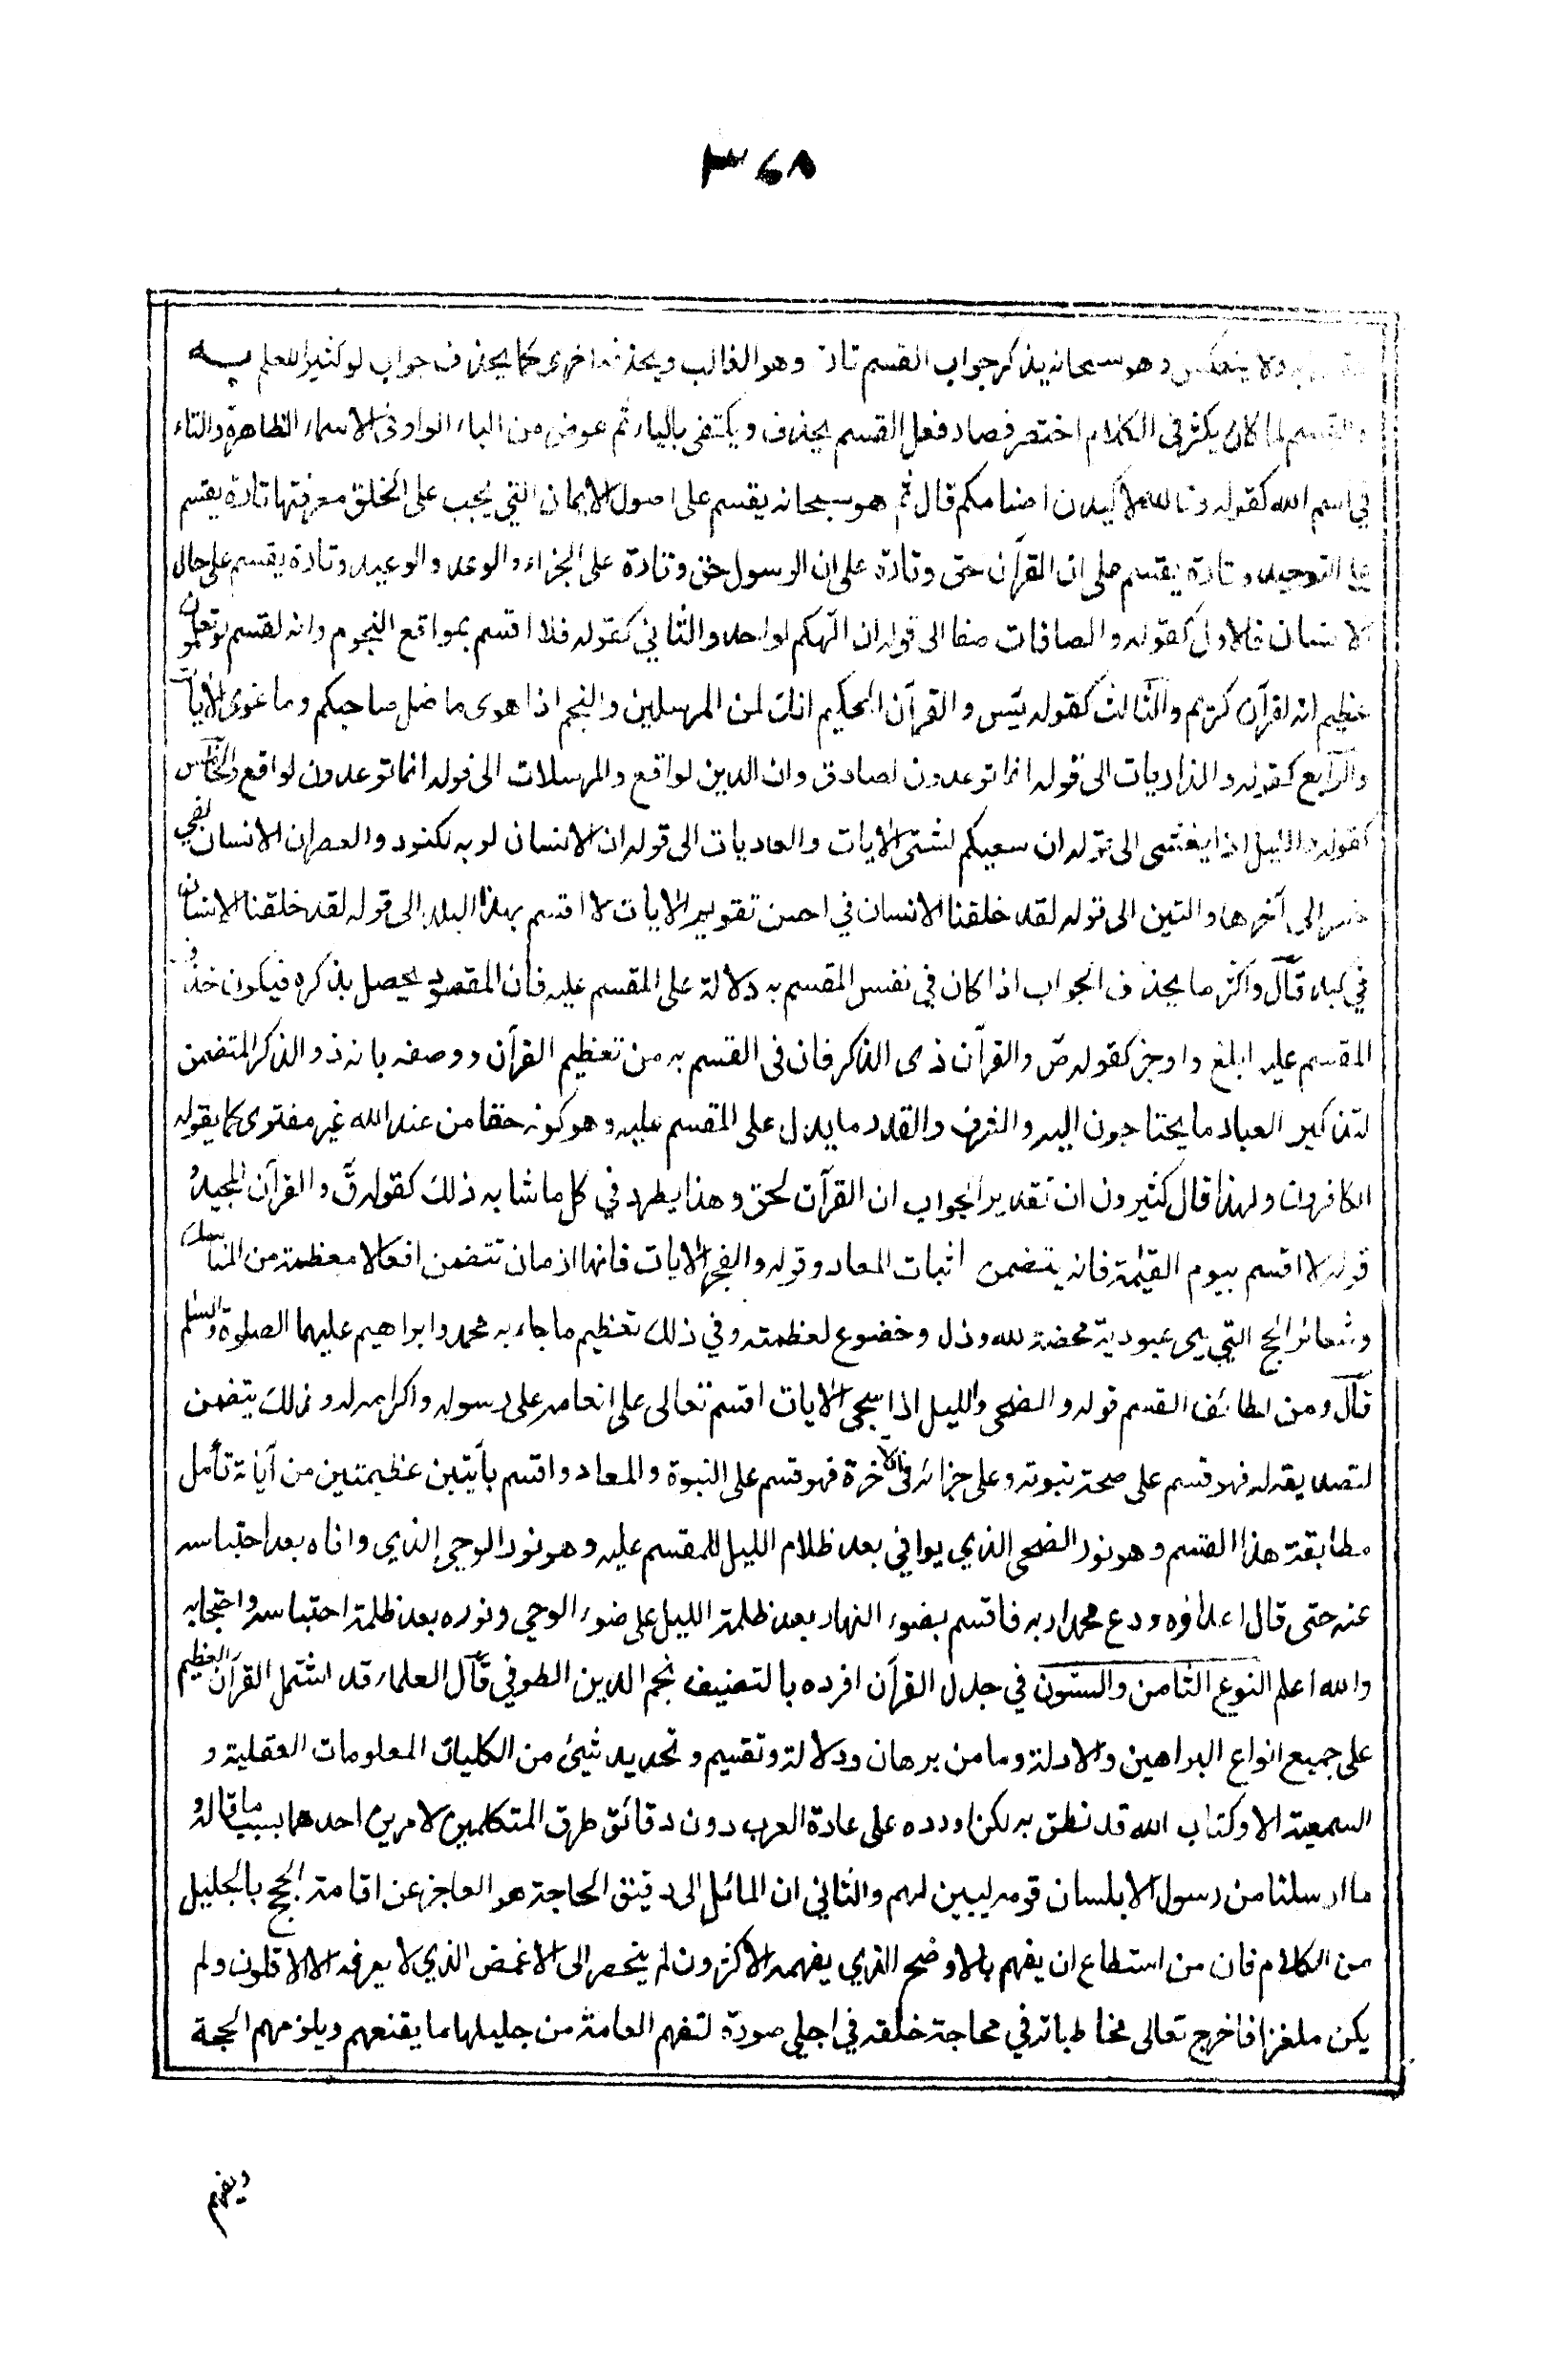 ٣٦٨
ولا ينعكس وهو سبحانه يذكر جواب القسم تارة وهو الغالب ويحذفه اخرى كما يحذف جواب لو كثيرا للعلم به
والقسم لما كان يكثر في الكلام اختصر فصار فعل القسم يحذف ويكتفى بالباء ثم عوض من الباء الواو في الاسماء الظاهرة والتاء
في اسم الله كقوله وتالله لاكيدن اصنامكم قال ثم هو سبحانه يقسم على اصول الايمان التي يجب على الخلق معرفتها تارة يقسم
على التوحيد وتارة يقسم على ان القرآن حق وتارة على ان الرسول حق وتارة على الجزاء والوعد والوعيد وتارة يقسم على حال
الانسان فالاول كقوله والصافات صفا الى قوله ان الهكم لواحد والثاني كقوله فلا اقسم بمواقع النجوم وانه لقسم لو تعلمون
عظيم انه لقرآن كريم والثالث كقوله يٰس والقرآن الحكيم انك لمن المرسلين والنجم اذا هوى ما ضل صاحبكم وما غوى الآيات
والرابع كقوله والذاريات الى قوله انما توعدون لصادق وان الدين لواقع والمرسلات الى قوله انما توعدون لواقع والخامس
كقوله والليل اذا يغشى الى قوله ان سعيكم لشتى الآيات والعاديات الى قوله ان الانسان لربه لكنود والعصر ان الانسان لفي
خسر الى آخرها والتين الى قوله لقد خلقنا الانسان في احسن تقويم الآيات لا اقسم بهذا البلد الى قوله لقد خلقنا الانسان
في كبد قال واكثر ما يحذف الجواب اذا كان في نفس المقسم به دلالة على المقسم عليه فان المقصود يحصل بذكره فيكون حذف
المقسم عليه ابلغ واوجز كقوله صٓ والقرآن ذى الذكر فان في القسم به من تعظيم القرآن ووصفه بانه ذو الذكر المتضمن
لتذكير العباد ما يحتاجون اليه والشرف والقدر ما يدل على المقسم عليه وهو كونه حقا من عند الله غير مفترى كما يقوله
الكافرون ولهذا قال كثيرون ان تقدير الجواب ان القرآن لحق وهذا يطرد في كل ما شابه ذلك كقوله قٓ والقرآن المجيد و
قوله لا اقسم بيوم القيٰمة فانه يتضمن اثبات المعاد وقوله والفجر الآيات فانها ازمان تتضمن افعالا معظمة من المناسك
وشعائر الحج التي هي عبودية محضة لله وذل وخضوع لعظمته وفي ذلك تعظيم ما جاء به محمد وابراهيم عليهما الصلوة والسلٰم
قال ومن لطائف القسم قوله والضحى والليل اذا سجى الآيات اقسم تعالى على انعامه على رسوله واكرامه له وذلك يتضمن
لتصديقه له فهو قسم على صحة نبوته وعلى جزائه في الآخرة فهو قسم على النبوة والمعاد واقسم بآيتين عظيمتين من آياته تأمل
مطابقة هذا القسم وهو نور الضحى الذي يوافي بعد ظلام الليل للمقسم عليه وهو نور الوحي الذي وافاه بعد احتباسه
عنه حتى قال اعداؤه ودع محمدا ربه فاقسم بضوء النهار بعد ظلمة الليل على ضوء الوحي ونوره بعد ظلمة احتباسه واحتجابه
والله اعلم النوع الثامن والستون في جدل القرآن افرده بالتصنيف نجم الدين الطوفي قال العلماء قد اشتمل القرآن العظيم
على جميع انواع البراهين والادلة وما من برهان ودلالة وتقسيم وتحديد شيئ من الكليات المعلومات العقلية و
السمعية الا وكتاب الله قد نطق به لكن اورده على عادة العرب دون دقائق طرق المتكلمين لامرين احدهما بسبب ما قاله و
ما ارسلنا من رسول الا بلسان قومه ليبين لهم والثاني ان المائل الى دقيق الحاجة هو العاجز عن اقامة الحجج بالجليل
من الكلام فان من استطاع ان يفهم بالاوضح الذي يفهمه الاكثرون لم ينحصر الى الاغمض الذي لا يعرفه الا الاقلون ولم
يكن ملغزا فاخرج تعالى مخاطباته في محاجة خلقه في اجلى صورة لتفهم العامة من جليلها ما يقنعهم ويلزمهم الحجة
ويفهم